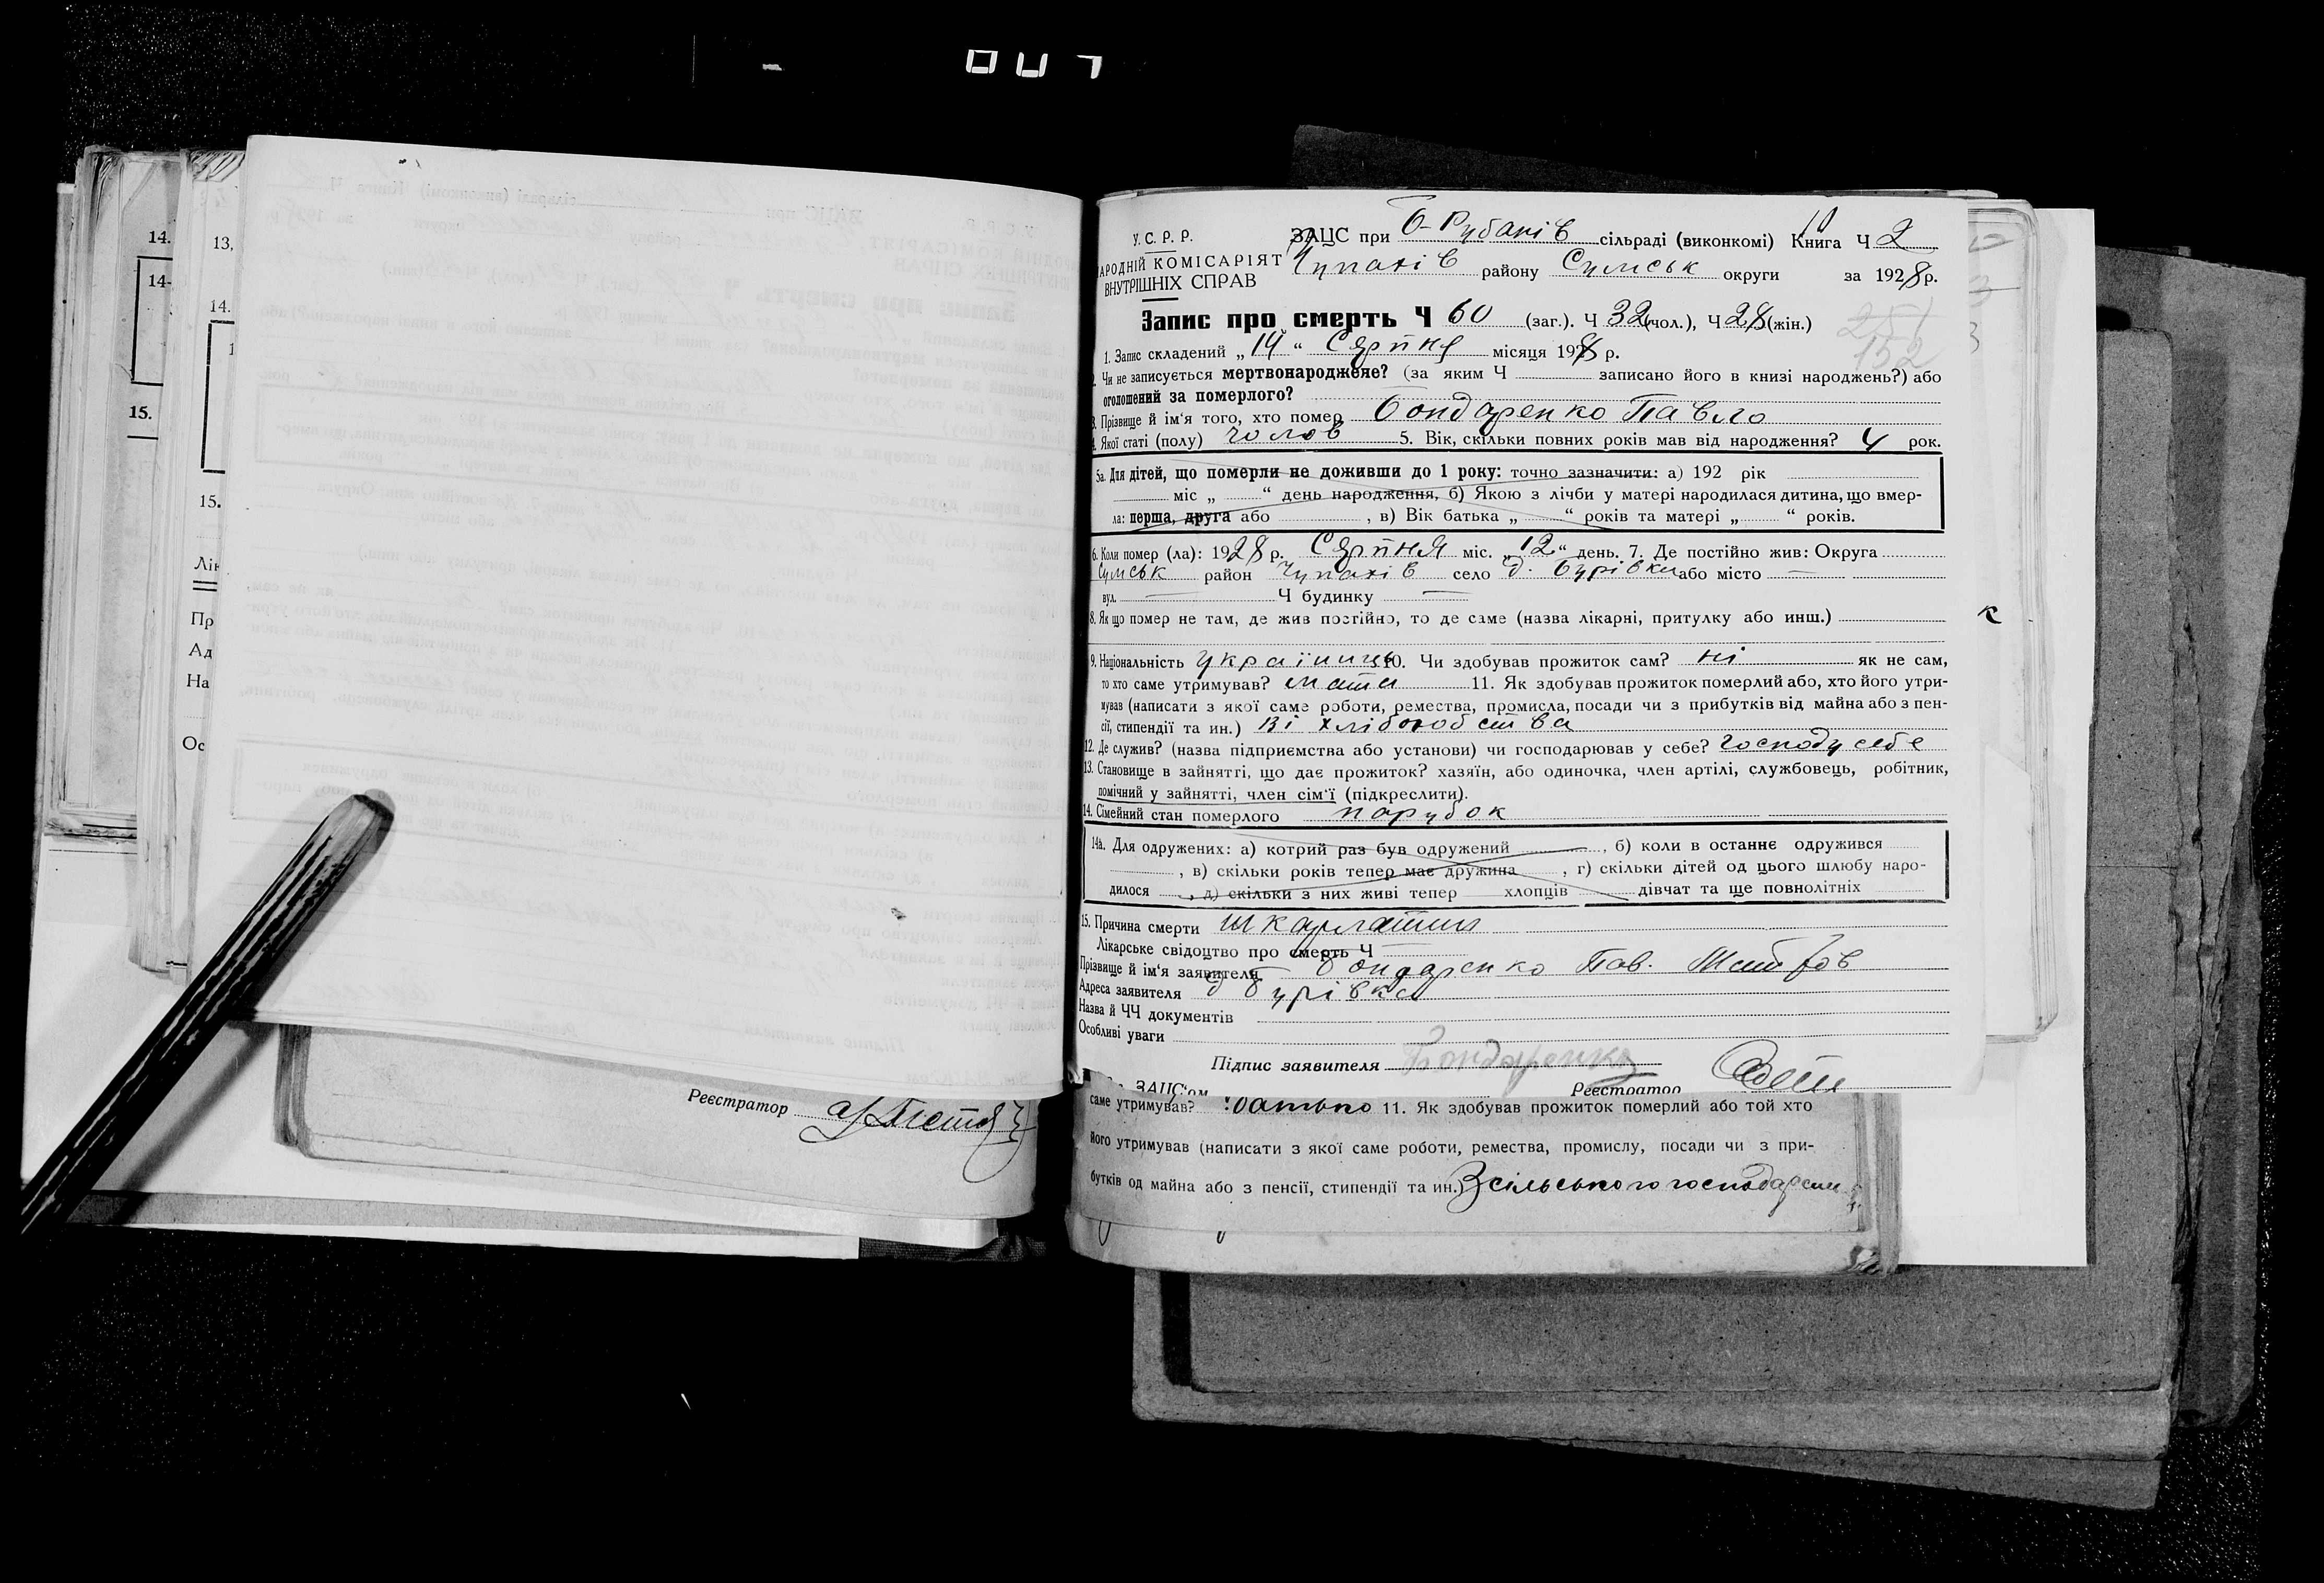 14.
14-
15.
13,
14.
1
15.
Лік
Пр
Ад
На
Ос
Реєстратор
У. С. Р. Р.
НАРОДНІЙ КОМІСАРІЯТ
ВНУТРІШНІХ СПРАВ
ЗАЦС при Б-Рубанів сільраді (виконкомі) Книга Ч 2
Чупахів району Сумськ округи за 1928 р.
Запис про смерть Ч 60 (заг.). Ч 32 (чол.), Ч 28 (жін.)
251
152
1. Запис складений „14“ Серпня місяця 1928 р.
2. Чи не записується мертвонароджене? (за яким Ч записано його в книзі народжень?) або
оголошений за померлого?
3. Прізвище й ім'я того, хто помер Бондаренко Павло
4. Якої статі (полу) чолов 5. Вік, скільки повних років мав від народження? 4 рок.
5а. Для дітей, що померли не доживши до 1 року: точно зазначити: а) 192 рік
міс „ “ день народження, б) Якою з лічби у матері народилася дитина, що вмер-
ла: перша, друга або , в) Вік батька „ “ років та матері „ “ років.
6. Коли помер (ла): 1928 р. Серпня міс. „12“ день. 7. Де постійно жив: Округа
Сумськ район Чупахів село д. Бурівка або місто —
вул. — Ч будинку —
8. Якщо помер не там, де жив постійно, то де саме (назва лікарні, притулку або инш.)
к
9. Національність українць 10. Чи здобував прожиток сам? ні як не сам,
то хто саме утримував? мати 11. Як здобував прожиток померлий або, хто його утри-
мував (написати з якої саме роботи, ремества, промисла, посади чи з прибутків від майна або з пен-
сії, стипендії та ин.) Зі хліборобства
12. Де служив? (назва підприємства або установи) чи господарював у себе? Господ у себе
13. Становище в зайнятті, що дає прожиток? хазяїн, або одиночка, член артілі, службовець, робітник,
помічний у зайнятті, член сім'ї (підкреслити).
14. Сімейний стан померлого парубок
14а. Для одружених: а) котрий раз був одружений , б) коли в останнє одружився
, в) скільки років тепер має дружина , г) скільки дітей од цього шлюбу наро-
дилося , д) скільки з них живі тепер хлопців дівчат та ще повнолітніх
15. Причина смерти шкарлатина
Лікарське свідоцтво про смерть Ч
Прізвище й ім'я заявителя Бондаренко Пав.
Адреса заявителя д Бурівка
Назва й ЧЧ документів
Особливі уваги
Підпис заявителя Бондаренко
ЗАЦС'ом Реєстратор
саме утримував? батько 11. Як здобував прожиток померлий або той хто
його утримував (написати з якої саме роботи, ремества, промислу, посади чи з при-
бутків од майна або з пенсії, стипендії та ин.) З сільського господарств